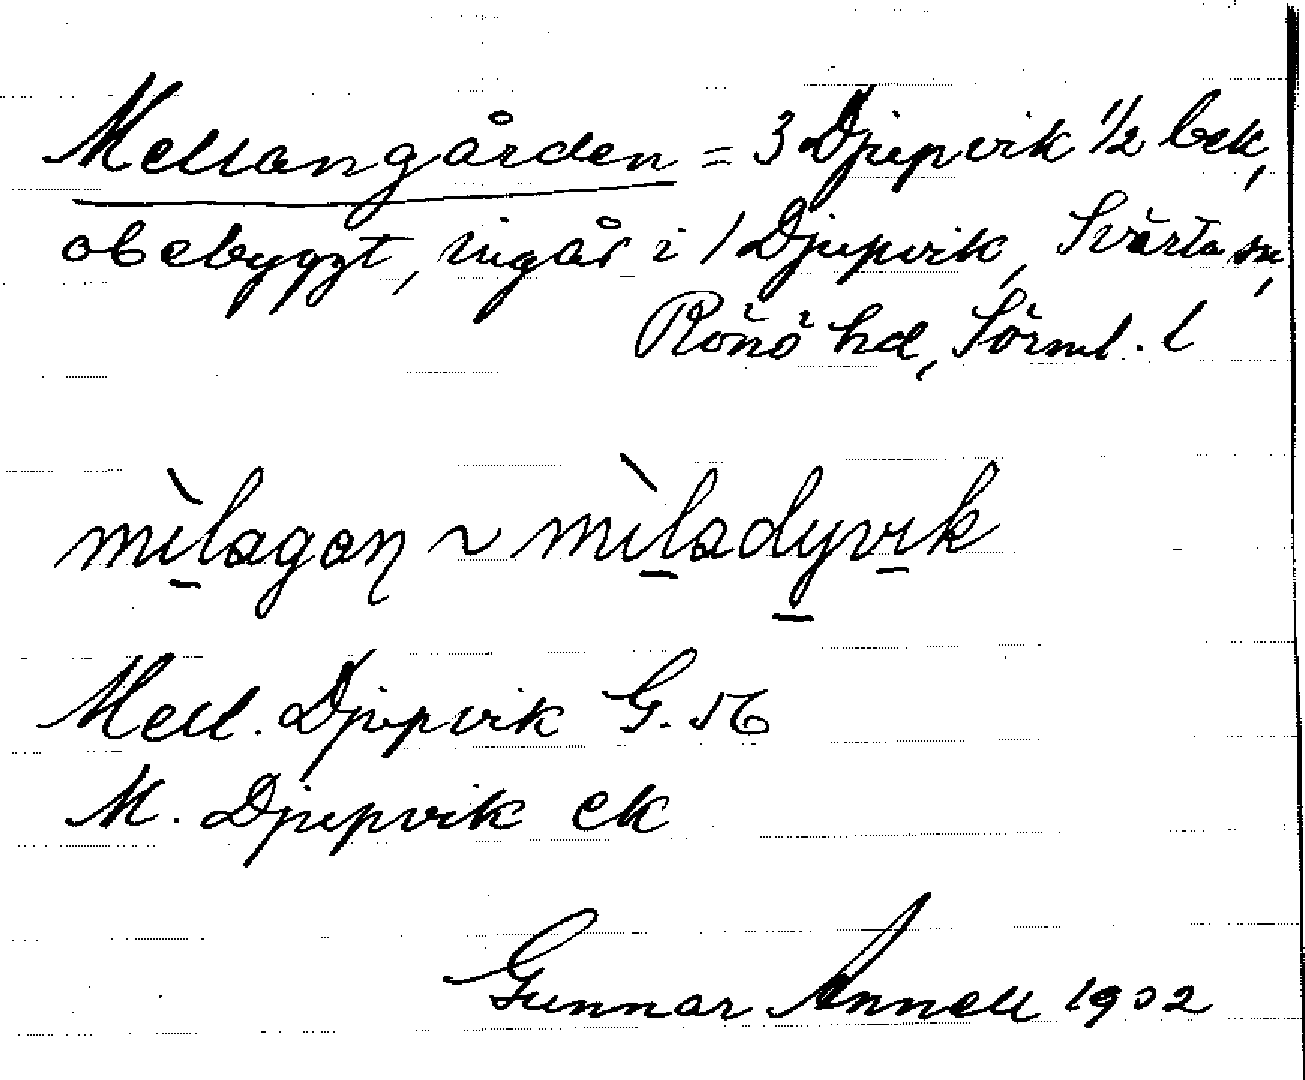 Mellangården = 3 Djupvik 1/2 bek,
obebyggt, ingår i 1 Djupvik, Svärta sn,
Rönö hd, Sörml. l
mìlagaɳ ~ mìladyvik
Mell. Djupvik G. 56
M. Djupvik ek
Gunnar Annell 1902